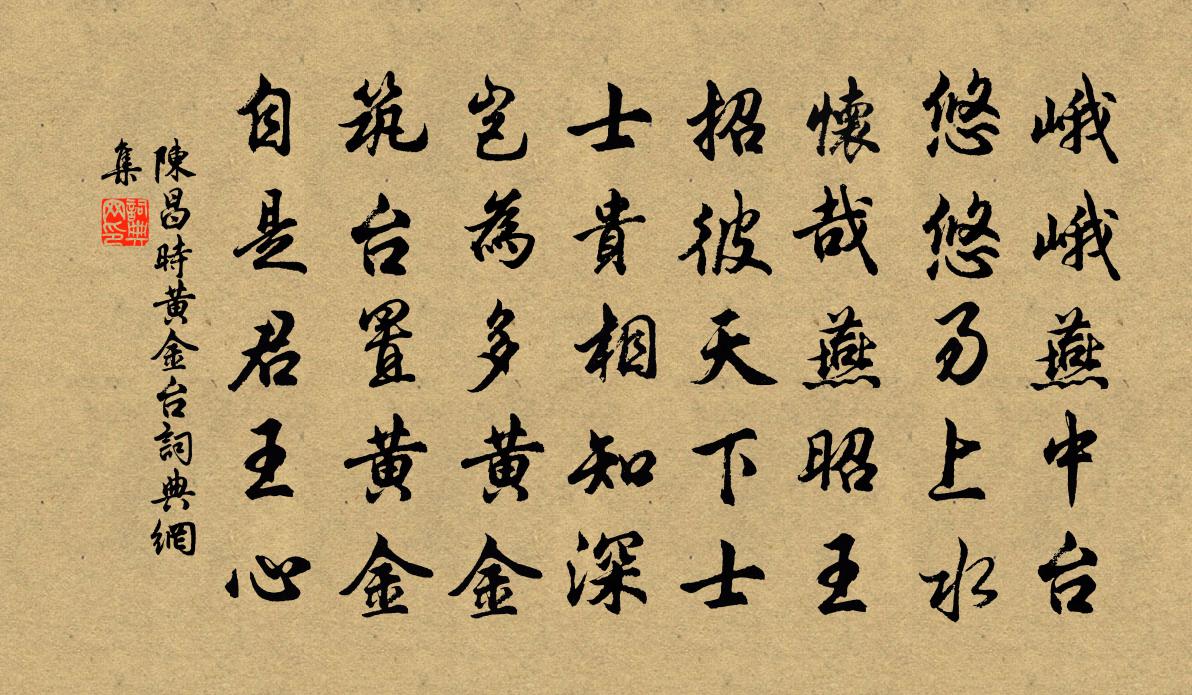 峨峨燕中台
悠悠易上水
懷哉燕昭王
招彼天下士
士貴相知深
豈為多黃金
筑台置黃金
自是君王心
陳昌時黃金台詞典網
集
詞典
网印